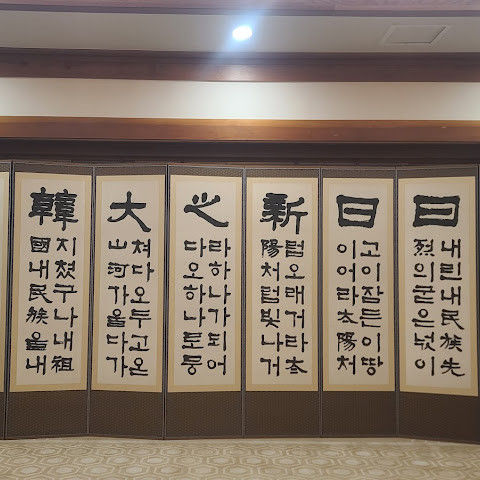 日
내린내民族先
烈의굳은넋이
日
고이잠든이땅
이어라太陽처
新
럼오래거라太
陽처럼빛나거
心
라하나가되어
다오하나로뭉
大
쳐다오두고온
山河가울다가
韓
지쳤구나내祖
國내民族을내